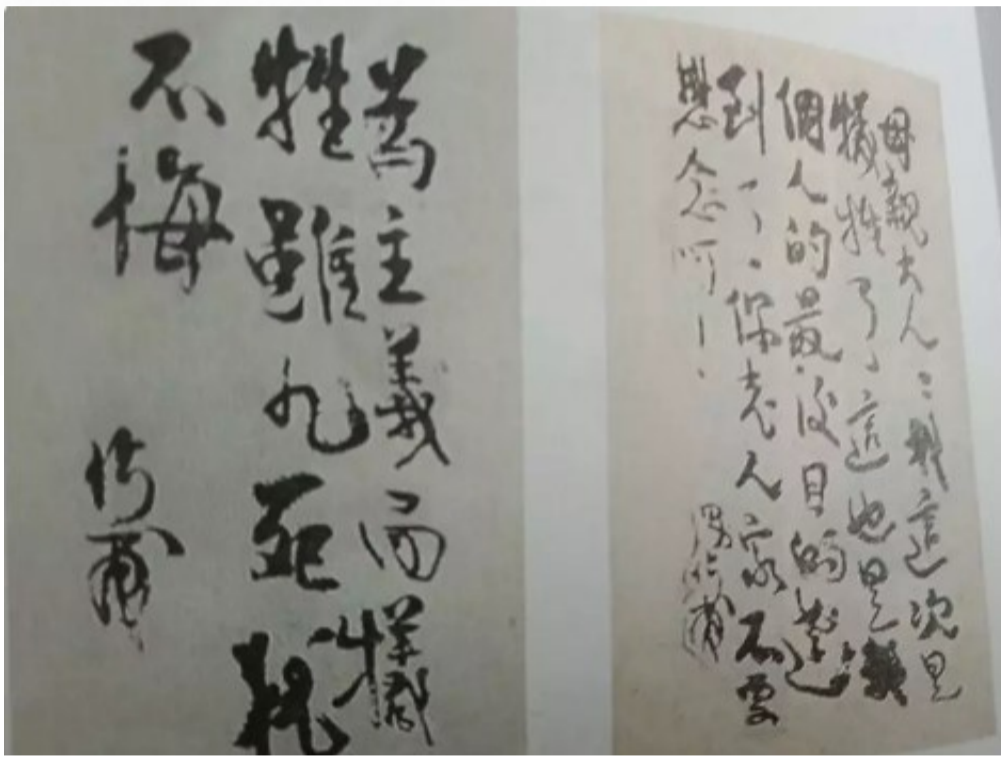 母親大人：我這次是
犧牲了，這也是我
個人的最後目的達
到了，你老人家不要
懸念啊！
為主義而犧
牲雖九死犹
不悔